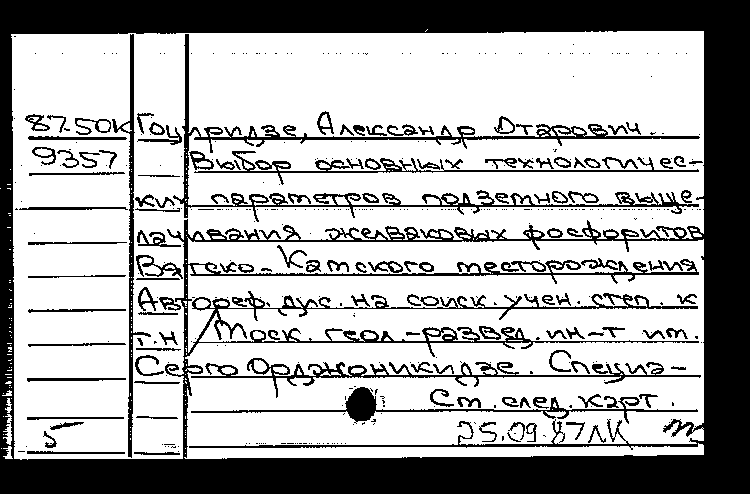 87-50K Гоциридзе, Александр Отарович.
9357 Выбор основных технологичес-
ких параметров подземного выще-
лачивания желваковых фосфоритов
Вятско-Камского месторождения:
Автореф. дис. на соиск. учен. степ. к
т.н / Моск. геол.-развед. ин-т им.
Серго Орджоникидзе. Специа-
См. след. карт.
5 25.09.87ЛК